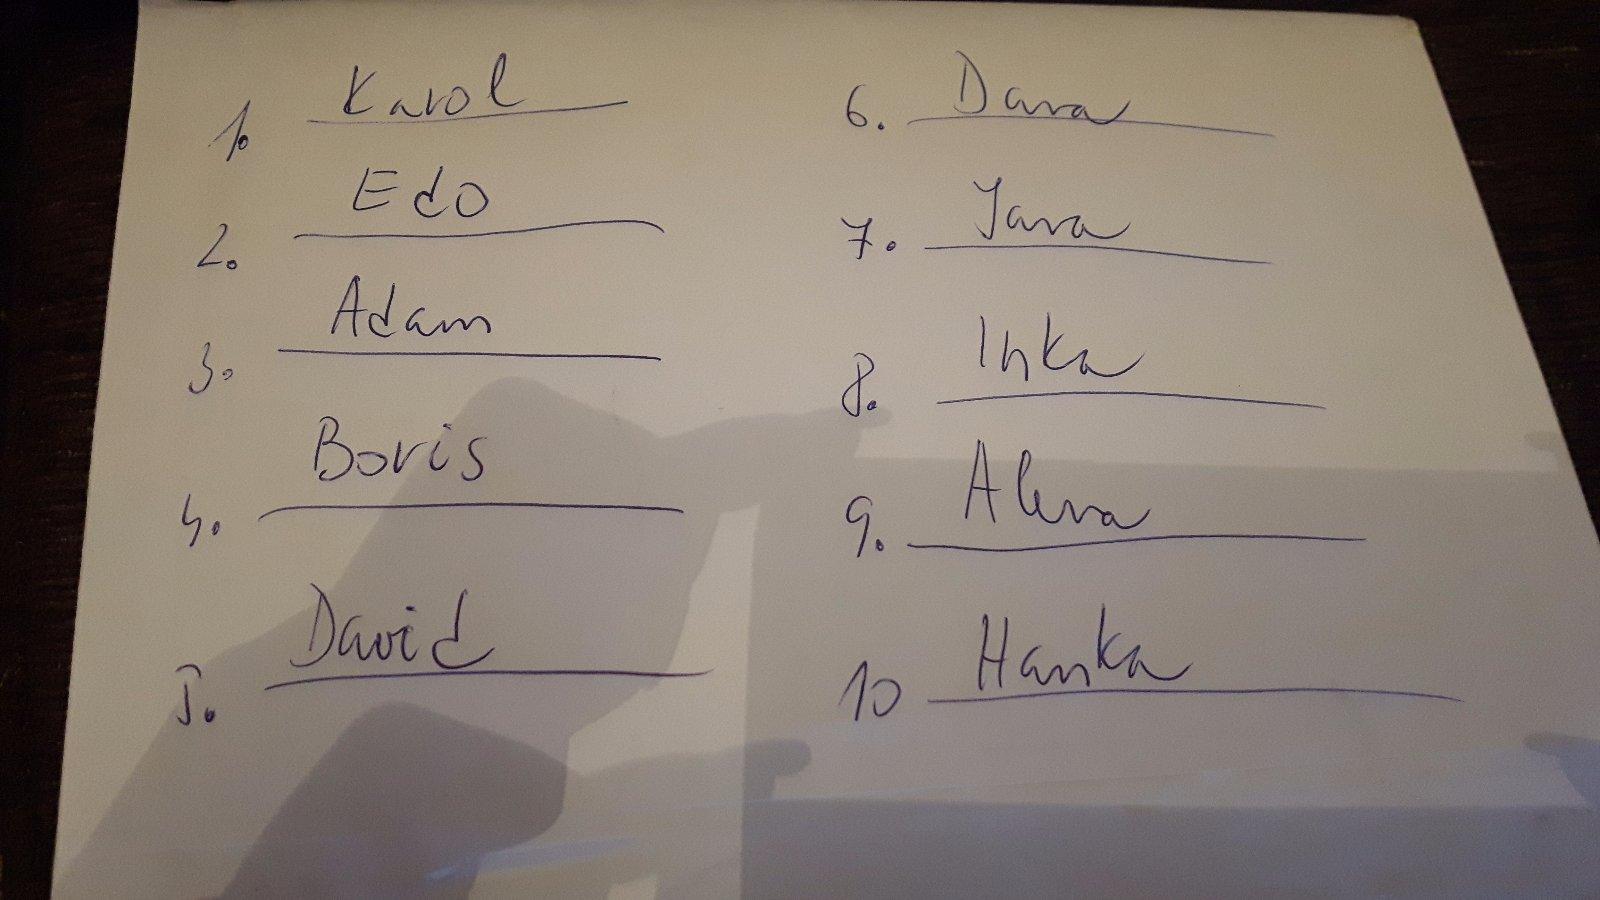 1. Karol
2. Edo
3. Adam
4. Boris
5. David
6. Dara
7. Jara
8. Inka
9. Alena
10 Hanka